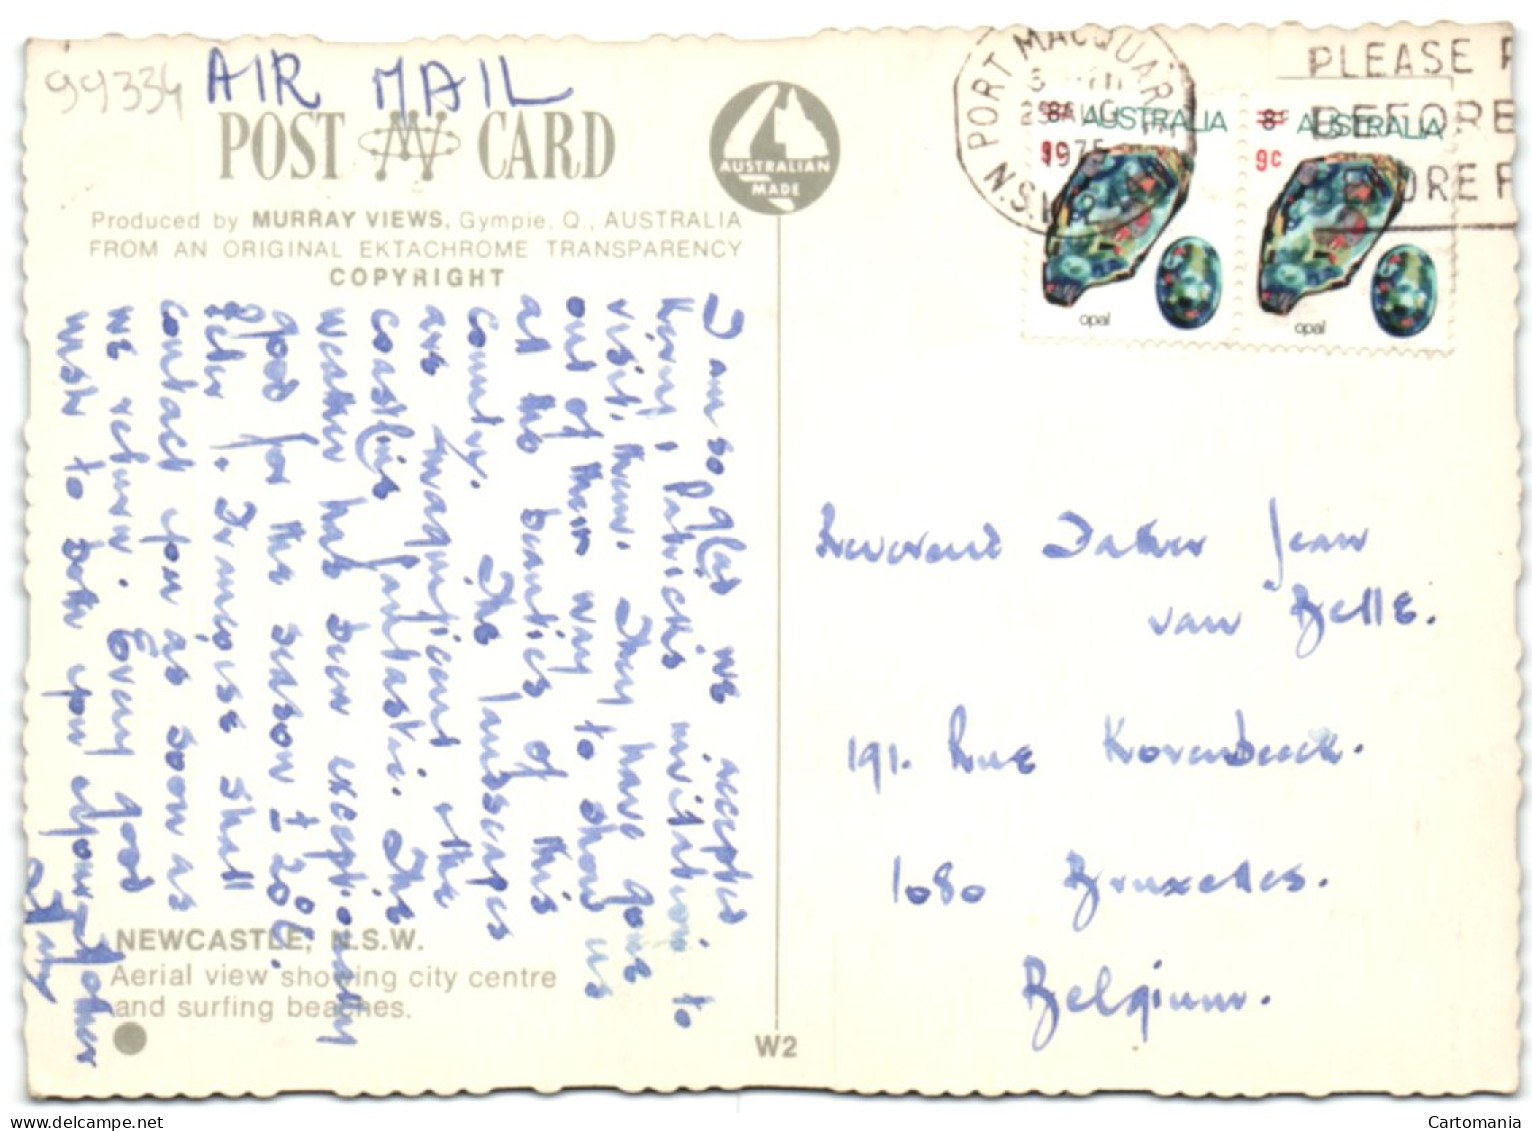 99334
AIR MAIL
POST CARD
AUSTRALIAN
MADE
Produced by MURRAY VIEWS, Gympie, Q., AUSTRALIA
FROM AN ORIGINAL EKTACHROME TRANSPARENCY
COPYRIGHT
I am so glad we accepted
Kerry, Patricks invitation to
visit them. They have gone
out of their way to show us
all the beauties of this
country. The landscapes
are magnificent & the
coastline fantastic. The
weather has been exceptionally
good for the season ± 20°C.
Françoise shall
contact you as soon as
we return. Every good
wish to both you &
Mary
NEWCASTLE, N.S.W.
Aerial view showing city centre
and surfing beaches.
W2
PORT MACQUARIE
29 AUG
1975
N.S.W.
PLEASE
BEFORE
BEFORE
8c AUSTRALIA
9c
opal
8c AUSTRALIA
9c
opal
Reverend Father Jean
van Belle.
191. Rue Korenbeek.
1080 Bruxelles.
Belgium.
Cartomania